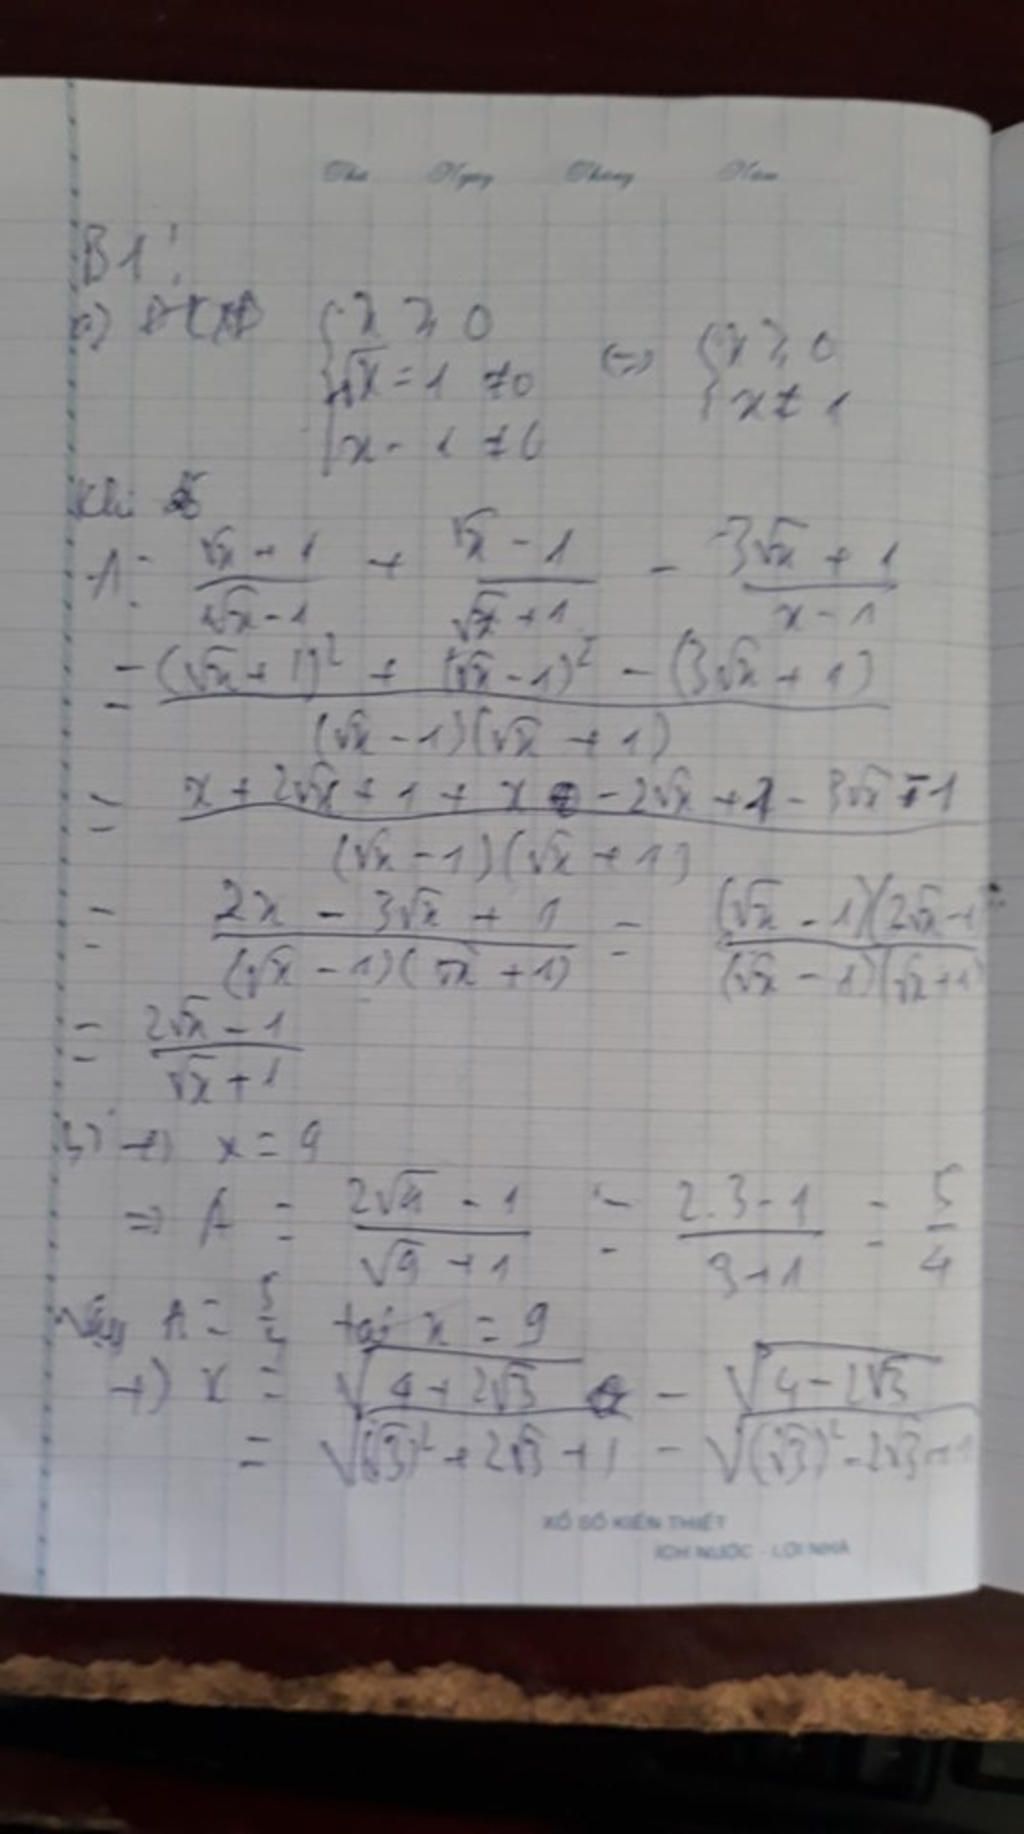 Thứ Ngày Tháng Năm
B1:
a) ĐKXĐ { x ≥ 0 { √x - 1 ≠ 0 { x - 1 ≠ 0 <=> { x ≥ 0 { x ≠ 1
Khi
A = (√x + 1)/(√x - 1) + (√x - 1)/(√x + 1) - (3√x + 1)/(x - 1)
= ((√x + 1)² + (√x - 1)² - (3√x + 1))/((√x - 1)(√x + 1))
= (x + 2√x + 1 + x - 2√x + 1 - 3√x - 1)/((√x - 1)(√x + 1))
= (2x - 3√x + 1)/((√x - 1)(√x + 1)) = ((√x - 1)(2√x - 1)/((√x - 1)(√x + 1)
= (2√x - 1)/(√x + 1)
b) +) x = 9
=> A = (2√9 - 1)/(√9 + 1) = (2.3 - 1)/(3 + 1) = 5/4
Vậy A = 5/4 tại x = 9
+) x = √(4 + 2√3) - √(4 - 2√3)
= √((√3)² + 2√3 + 1) - √((√3)² - 2√3 + 1)
XỔ SỐ KIẾN THIẾT
ÍCH NƯỚC - LỢI NHÀ